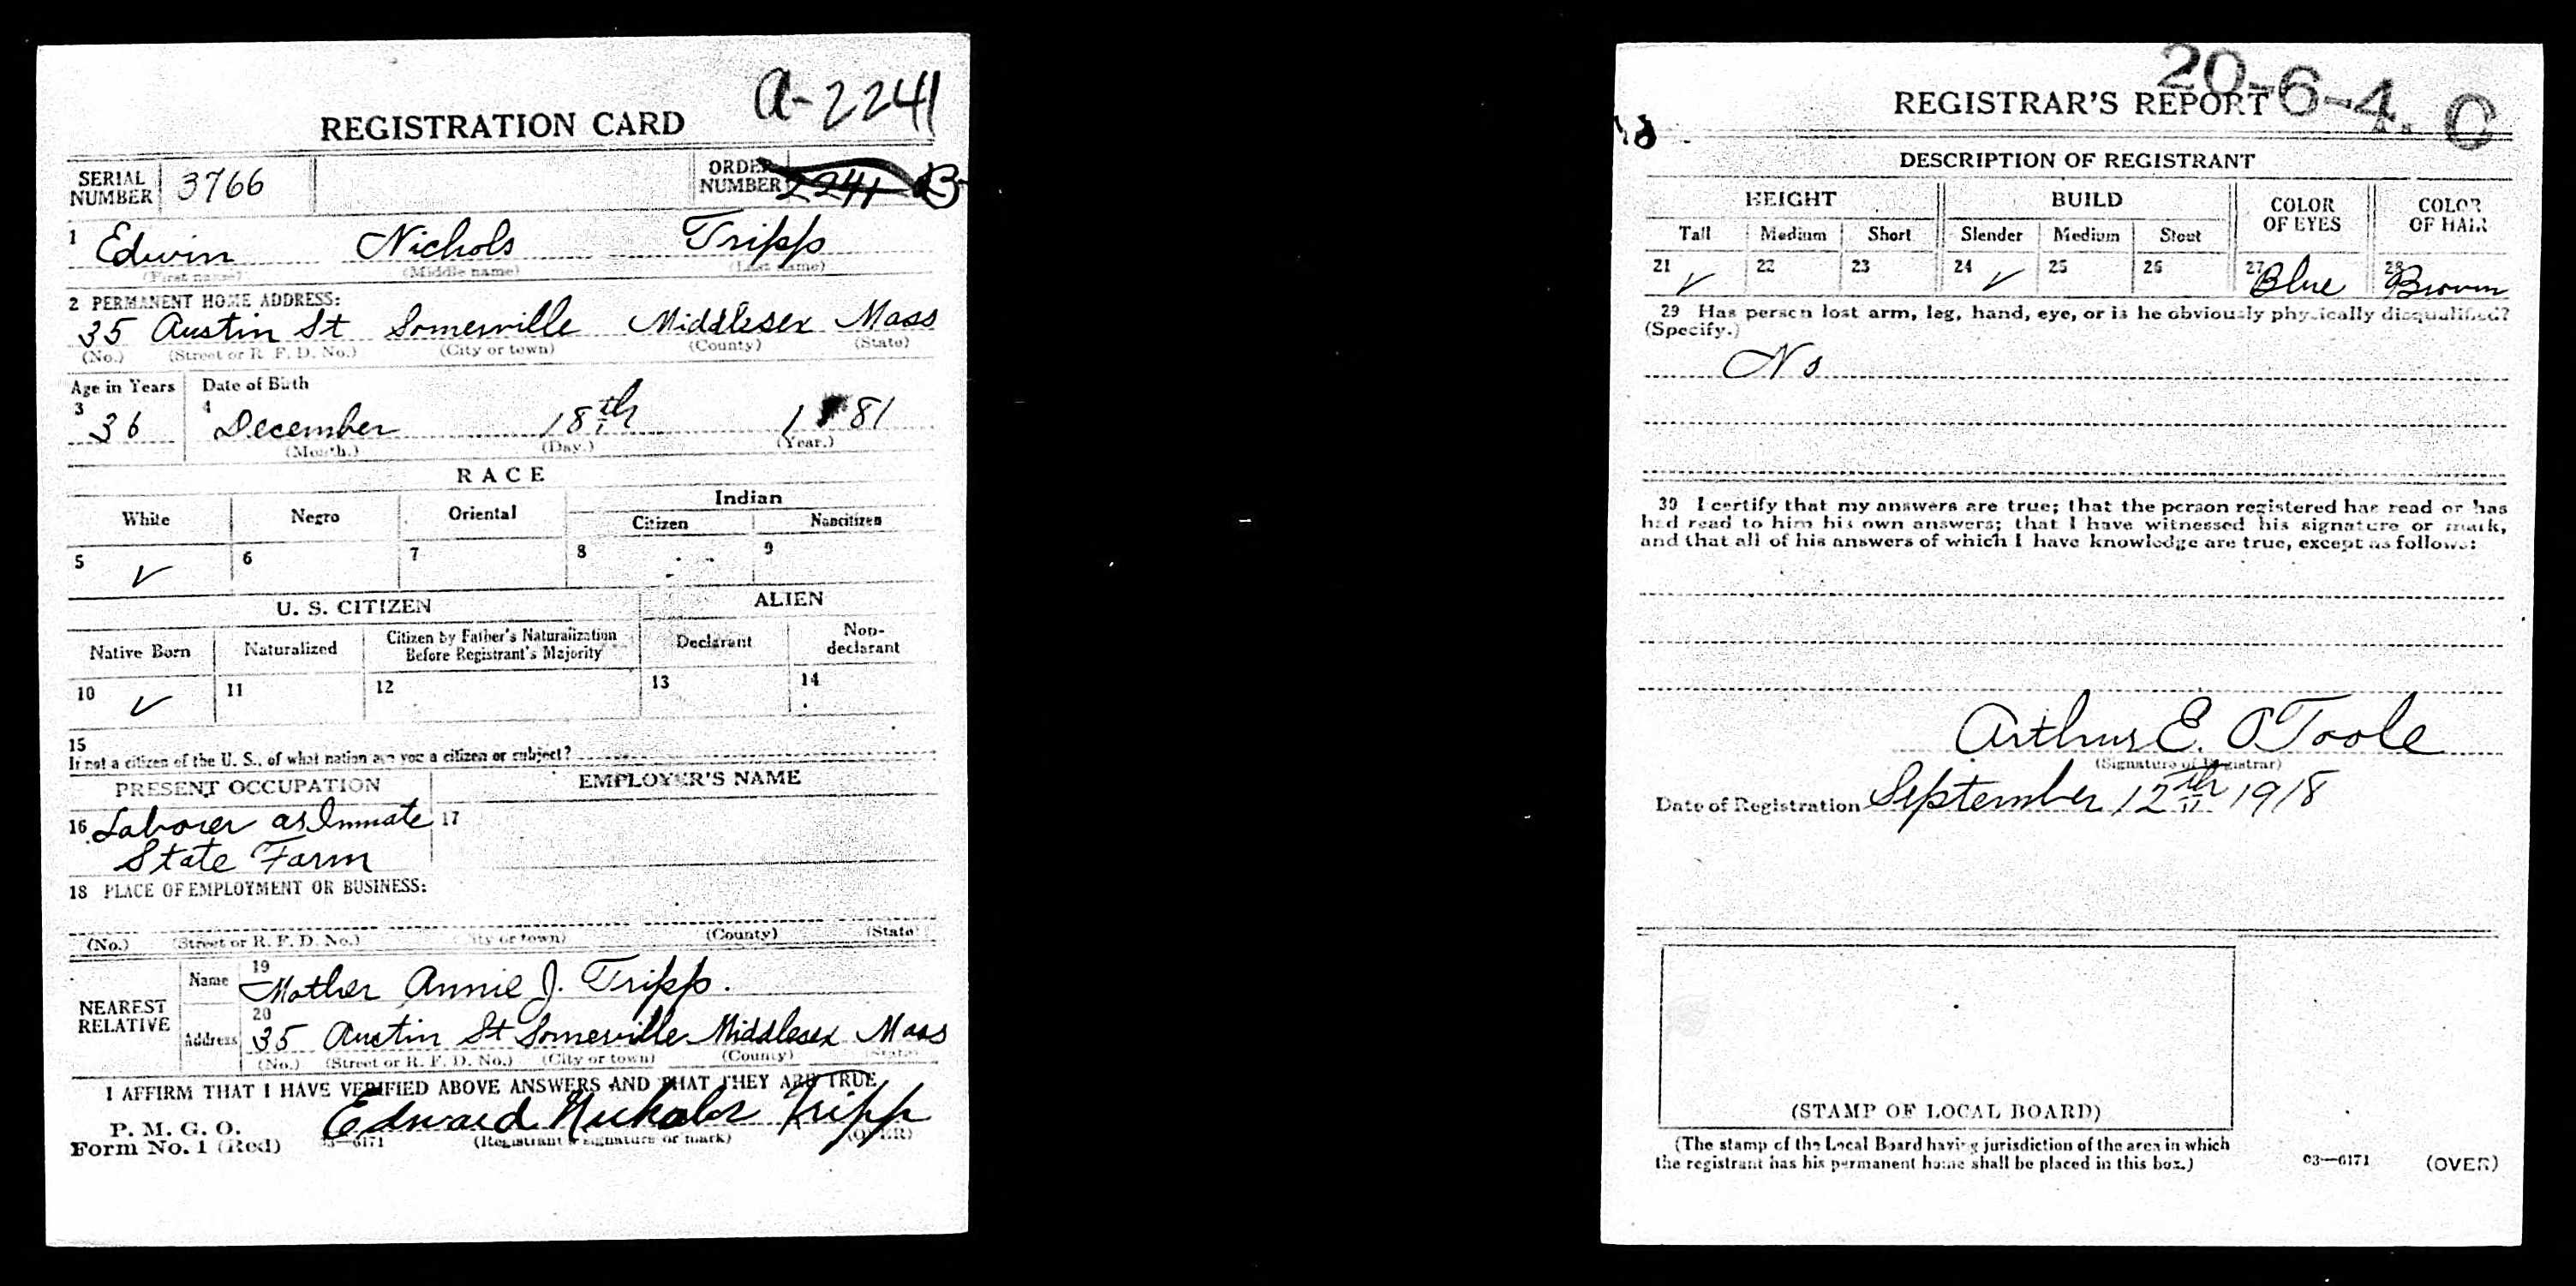 A-2241
REGISTRATION CARD
SERIAL NUMBER 3766 ORDER NUMBER 2241 B
1 Edwin Nichols Tripp
(First name) (Middle name) (Last name)
2 PERMANENT HOME ADDRESS:
35 Austin St Somerville Middlesex Mass
(No.) (Street or R. F. D. No.) (City or town) (County) (State)
Age in Years Date of Birth
3 36 4 December 18th 1881
(Month.) (Day.) (Year.)
RACE
White Negro Oriental Indian
Citizen Noncitizen
5 ✓ 6 7 8 9
U. S. CITIZEN ALIEN
Native Born Naturalized Citizen by Father's Naturalization Before Registrant's Majority Declarant Non-declarant
10 ✓ 11 12 13 14
15
If not a citizen of the U. S., of what nation are you a citizen or subject?
PRESENT OCCUPATION EMPLOYER'S NAME
16 Laborer as Inmate 17
State Farm
18 PLACE OF EMPLOYMENT OR BUSINESS:
(No.) (Street or R. F. D. No.) (City or town) (County) (State)
NEAREST RELATIVE
Name 19 Mother Annie J. Tripp.
Address 20 35 Austin St Somerville Middlesex Mass
(No.) (Street or R. F. D. No.) (City or town) (County) (State)
I AFFIRM THAT I HAVE VERIFIED ABOVE ANSWERS AND THAT THEY ARE TRUE
P. M. G. O.
Form No. 1 (Red) 03—6171 Edward Nichols Tripp
(Registrant's signature or mark) (OVER)
20-6-4. C
REGISTRAR'S REPORT
DESCRIPTION OF REGISTRANT
HEIGHT BUILD COLOR OF EYES COLOR OF HAIR
Tall Medium Short Slender Medium Stout
21 ✓ 22 23 24 ✓ 25 26 27 Blue 28 Brown
29 Has person lost arm, leg, hand, eye, or is he obviously physically disqualified?
(Specify.)
No
30 I certify that my answers are true; that the person registered has read or has
had read to him his own answers; that I have witnessed his signature or mark,
and that all of his answers of which I have knowledge are true, except as follows:
Arthur E. O'Toole
(Signature of Registrar)
Date of Registration September 12th 1918
(STAMP OF LOCAL BOARD)
(The stamp of the Local Board having jurisdiction of the area in which
the registrant has his permanent home shall be placed in this box.)
03—6171 (OVER)